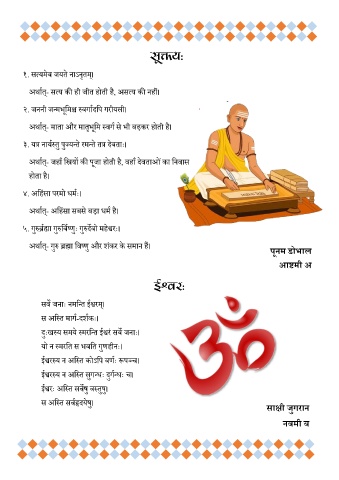 सूक्तय:
१. सत्यमेव जयते नाऽनृतम्।
अर्थात्- सत्य की ही जीत होती है, असत्य की नहीं।
२. जननी जन्मभूमिश्च स्वर्गादपि गरीयसी।
अर्थात्- माता और मातृभूमि स्वर्ग से भी बढ़कर होती है।
३. यत्र नार्यस्तु पूज्यन्ते रमन्ते तत्र देवता:।
अर्थात्- जहाँ स्त्रियों की पूजा होती है, वहाँ देवताओं का निवास
होता है।
४. अहिंसा परमो धर्म:।
अर्थात्- अहिंसा सबसे बड़ा धर्म है।
५. गुरुर्ब्रह्मा गुरुर्विष्णु: गुरुर्देवो महेश्वर:।
अर्थात्- गुरु ब्रह्मा विष्णु और शंकर के समान हैं।
पूनम डोभाल
अष्टमी अ
ईश्वर:
सर्वे जना: नमन्ति ईश्वरम्।
स अस्ति मार्ग-दर्शक:।
दु:खस्य समये स्मरन्ति ईश्वरं सर्वे जना:।
यो न स्मरति स भवति गुणहीन:।
ईश्वरस्य न अस्ति कोऽपि वर्ण: रूपञ्च।
ईश्वरस्य न अस्ति सुगन्ध: दुर्गन्ध: च।
ईश्वर: अस्ति सर्वेषु वस्तुषु।
स अस्ति सर्वहृदयेषु।
ॐ
साक्षी जुगरान
नवमी ब